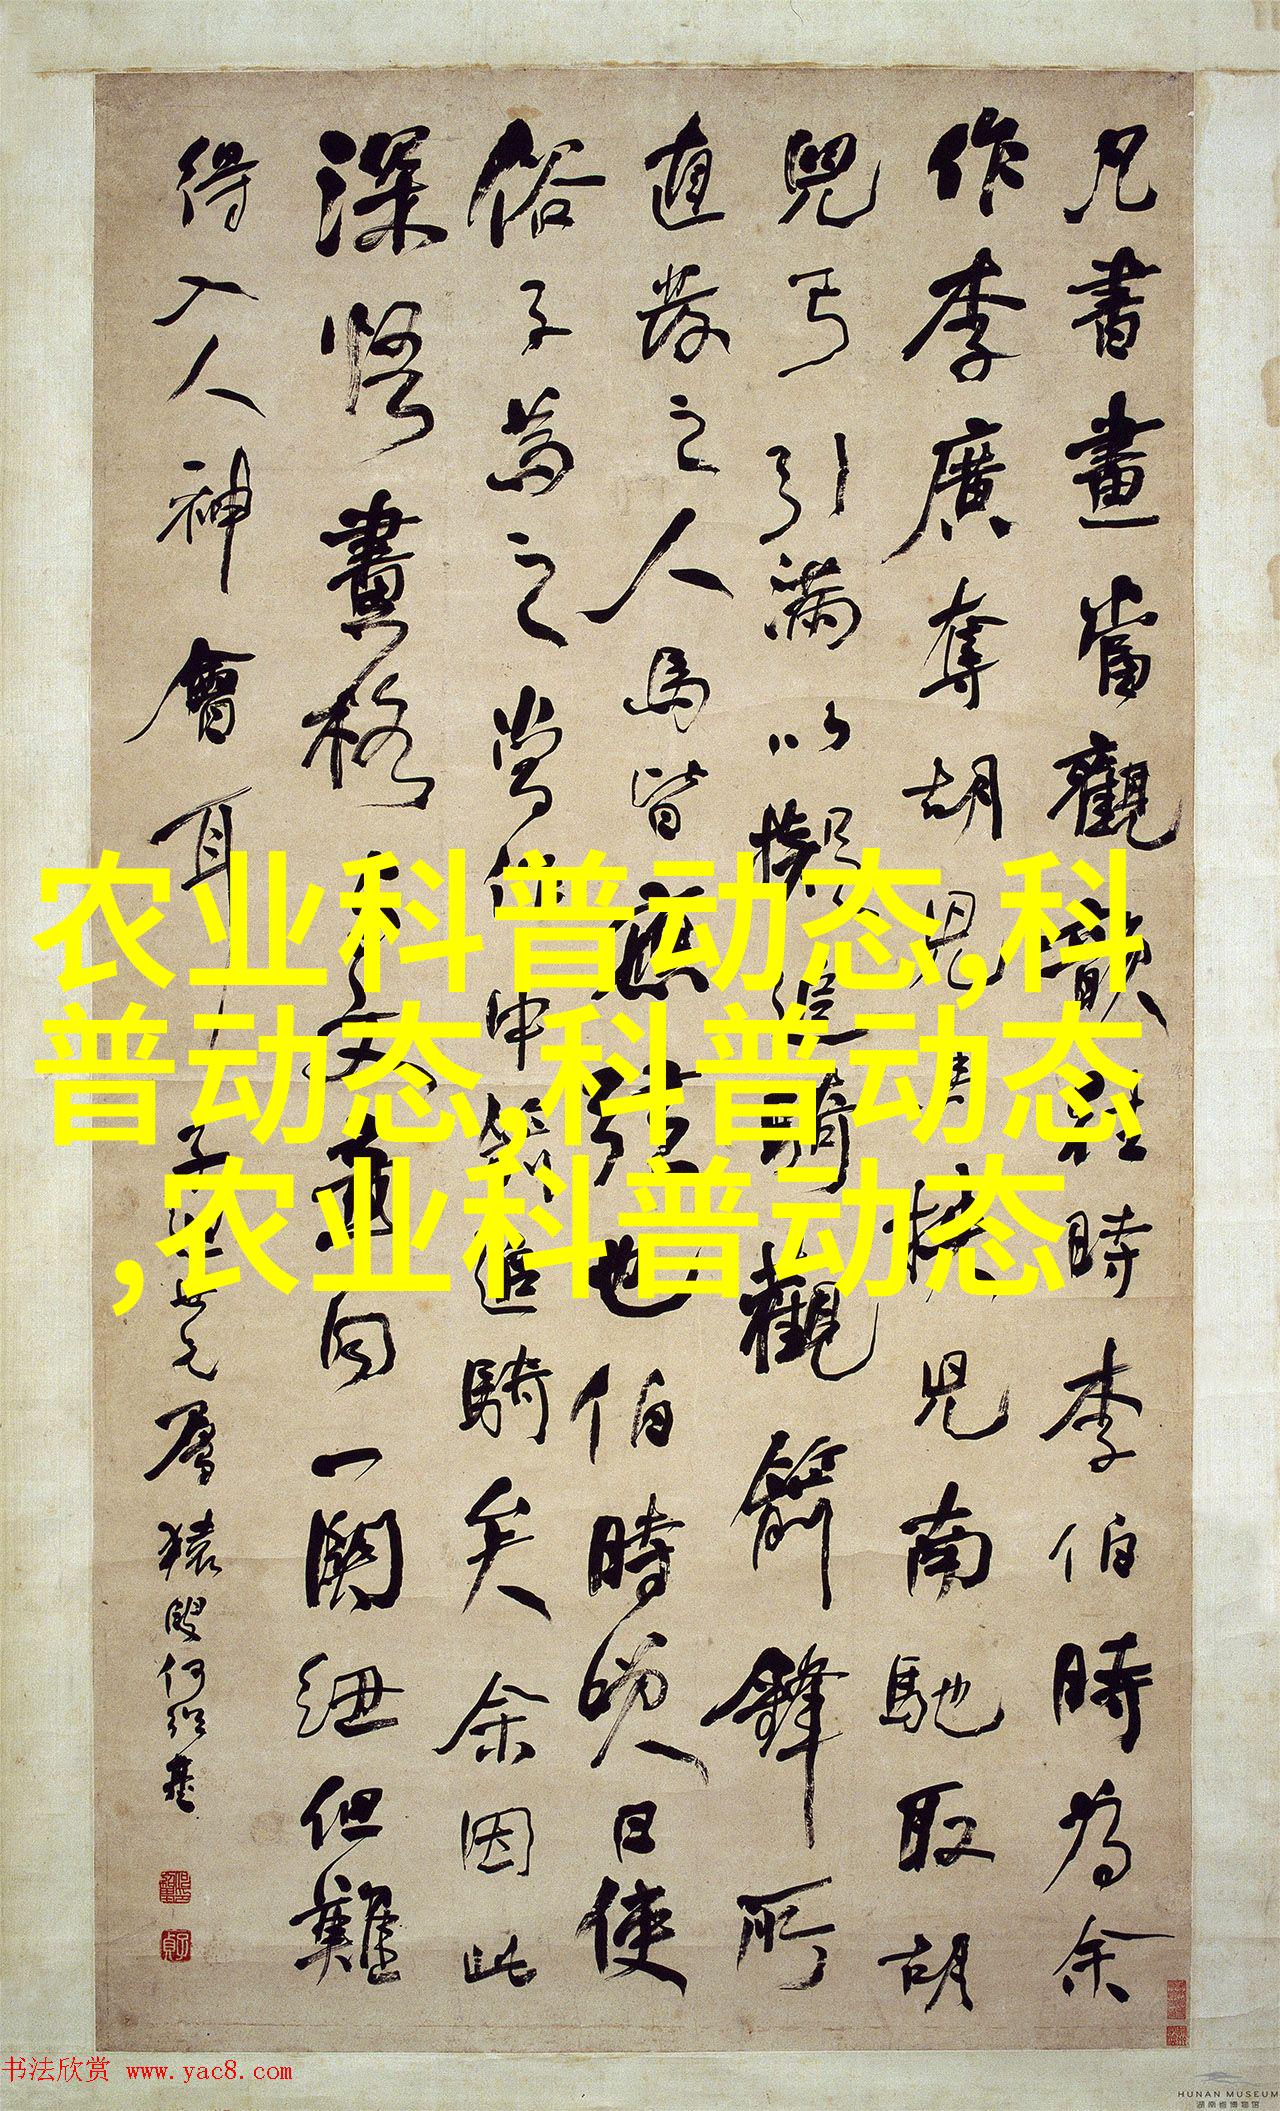 凡書畫當觀韻往時李伯時為余
作李廣奪胡兒馬挾兒南馳取胡
兒弓引滿以擬追騎觀箭鋒所
直發之人馬皆應弦也伯時笑曰使
俗子為之當作中箭追騎矣余因此
深悟畫格文章同一關紐但難
得入人神會耳
子世兄屬猿叟何紹基
农业科普动态,科
普动态,科普动态
,农业科普动态
书法欣赏 www.yac8.com
HUNAN MUSEUM
湖南省博物馆